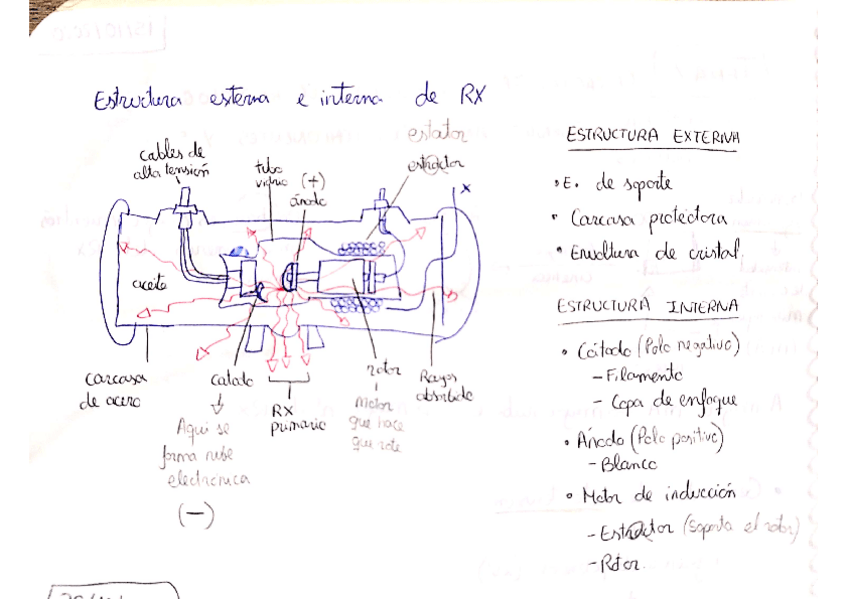 Estructura externa e interna de RX
estator
cables de
alta tensión
tubo
vidrio
(+)
ánodo
estractor
x
aceite
carcasa
de acero
catodo
Aqui se
forma nube
electrónica
(-)
RX
primario
rotor
Motor
que hace
que rote
Rayos
absorbido
ESTRUCTURA EXTERNA
• E. de soporte
• Carcasa protectora
• Envoltura de cristal.
ESTRUCTURA INTERNA
• Cátodo (Polo negativo)
- Filamento
- Copa de enfoque
• Ánodo (Polo positivo)
- Blanco
• Motor de inducción
- Estractor (soporta el rotor)
- Rotor.